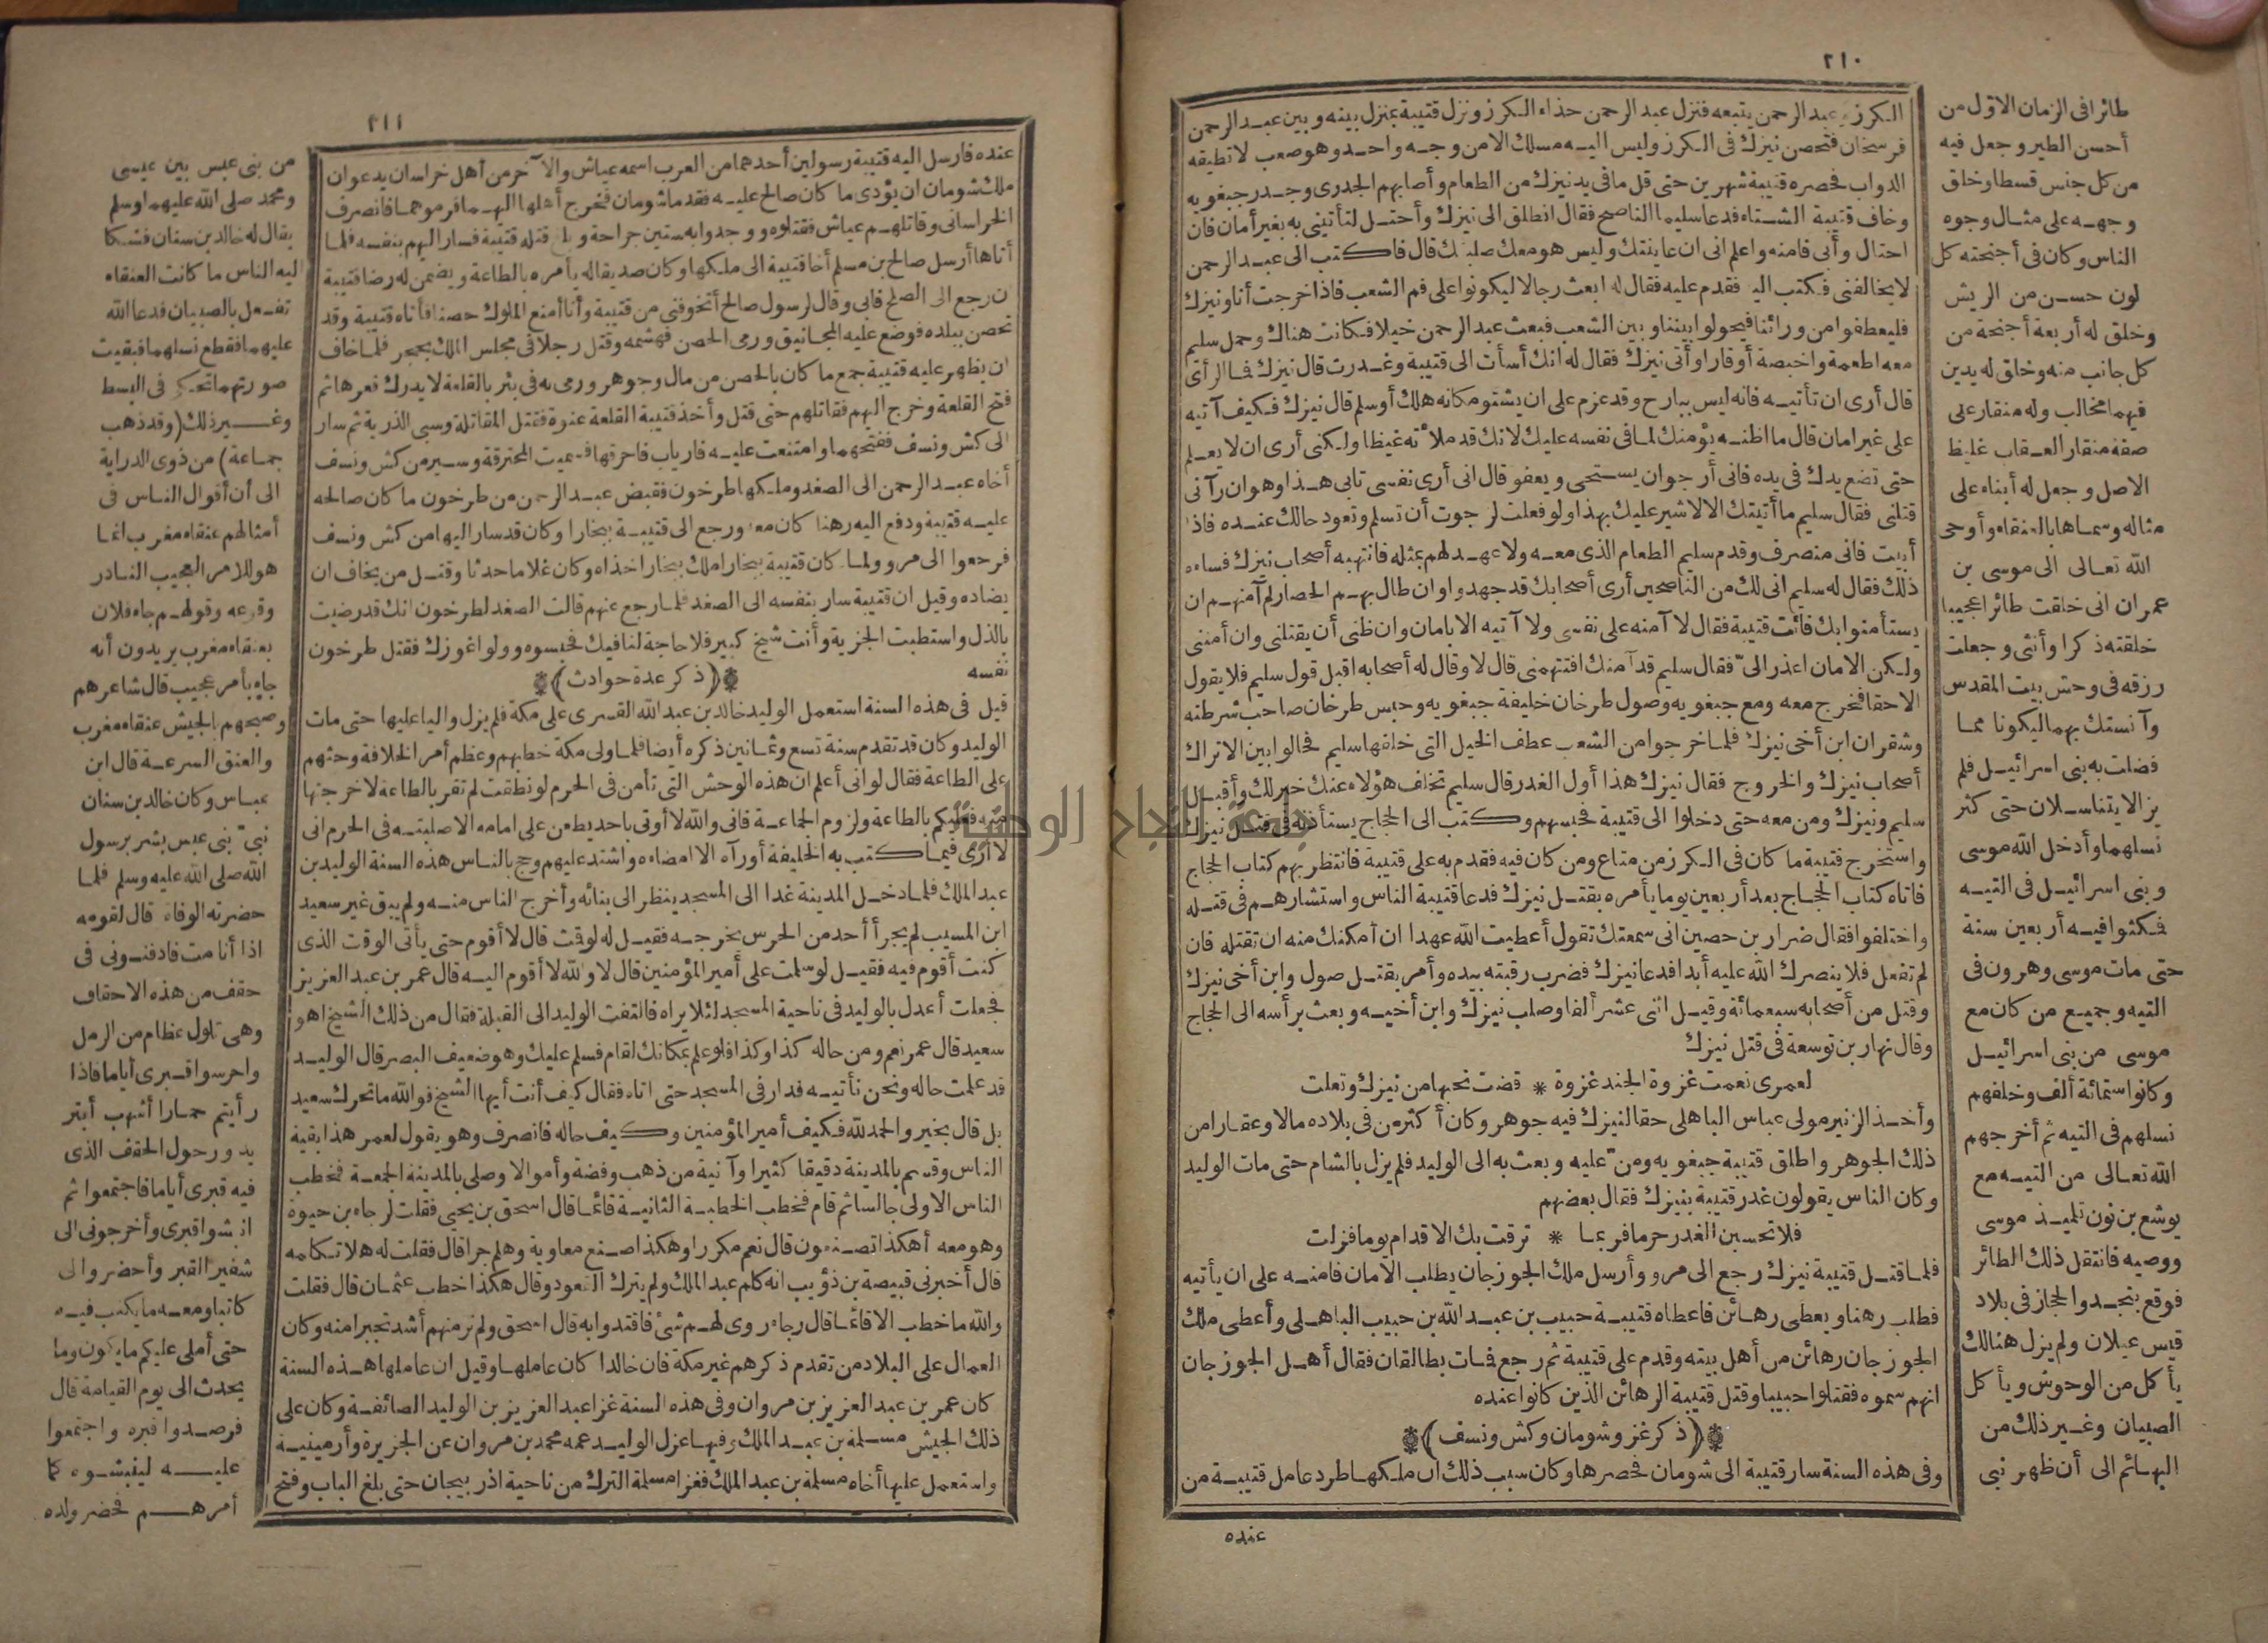 ٢١٠
الكرز وعبد الرحمن يتبعه فنزل عبد الرحمن حذاء الكرز ونزل قتيبة بمنزل بينه وبين عبد الرحمن
فرسخان فتحصن نيزك فى الكرز وليس اليه مسلك الامن وجه واحد وهو صعب لا تطيقه
الدواب فحصره قتيبة شهرين حتى قل ما فى يد نيزك من الطعام وأصابهم الجدرى وجدر جبغويه
وخاف قتيبة الشتاء فدعا سليما الناصح فقال انطلق الى نيزك وأحتل لتأتينى به بغير أمان فان
احتال وأبى فامنه واعلم انى ان عاينتك وليس هو معك صلبتك قال فاكتب الى عبد الرحمن
لا يخالفنى فكتب اليه فقدم عليه فقال له ابعث رجالا ليكونوا على فم الشعب فاذا خرجت أنا ونيزك
فليعطفوا من ورائنا فيحولوا بيننا وبين الشعب فبعث عبد الرحمن خيلا فكانت هناك وحمل سليم
معه اطعمة واخبصة أوقارا وأتى نيزك فقال له انك أسأت الى قتيبة وغدرت قال نيزك فما الرأى
قال أرى ان تأتيه فانه ليس ببارح وقد عزم على ان يشتو مكانه هلك أو سلم قال نيزك فكيف آتيه
على غير امان قال ما اظنه يؤمنك لما فى نفسه عليك لانك قد ملأته غيظا ولكنى أرى ان لا يعلم
حتى تضع يدك فى يده فانى أرجو ان يستحى ويعفو قال انى أرى نفسى تابى هذا وهو ان رآنى
قتلنى فقال سليم ما أتيتك الا لاشير عليك بهذا ولو فعلت لرجوت أن تسلم وتعود حالك عنده فاذا
أبيت فانى منصرف وقدم سليم الطعام الذى معه ولا عهد لهم بمثله فانتهبه أصحاب نيزك فساءه
ذلك فقال له سليم انى لك من الناصحين أرى أصحابك قد جهدوا وان طال بهم الحصار لم آمنهم ان
يستأمنوا بك فائت قتيبة فقال لا آمنه على نفسى ولا آتيه الا بامان وان ظنى أن يقتلنى وان أمننى
ولكن الامان اعذر الىّ فقال سليم قد آمنك افتتهمنى قال لا وقال له أصحابه اقبل قول سليم فلا يقول
الا حقا فخرج معه ومع جبغويه وصول طرخان خليفة جبغويه وحبس طرخان صاحب شرطته
وشقران ابن أخى نيزك فلما خرجوا من الشعب عطف الخيل التى خلفها سليم فحالوا بين الاتراك
أصحاب نيزك والخروج فقال نيزك هذا أول الغدر قال سليم تخلف هؤلاء عنك خير لك وأقبل
سليم ونيزك ومن معه حتى دخلوا الى قتيبة فحبسهم وكتب الى الحجاج يستأذنه فى قتل نيزك
واستخرج قتيبة ما كان فى الكرز من متاع ومن كان فيه فقدم به على قتيبة فانتظر بهم كتاب الحجاج
فاتاه كتاب الحجاج بعد أربعين يوما يأمره بقتل نيزك فدعا قتيبة الناس واستشارهم فى قتله
واختلفوا فقال ضرار بن حصين انى سمعتك تقول أعطيت الله عهدا ان أمكنك منه ان تقتله فان
لم تفعل فلا ينصرك الله عليه أبدا فدعا نيزك فضرب رقبته بيده وأمر بقتل صول وابن أخى نيزك
وقتل من أصحابه سبعمائة وقيل اثنى عشر ألفا وصلب نيزك وابن أخيه وبعث برأسه الى الحجاج
وقال نهار بن توسعة فى قتل نيزك
لعمرى نعمت غزوة الجند غزوة * قضت نحبها من نيزك وتعلت
وأخذ الزبير مولى عباس الباهلى حقا لنيزك فيه جوهر وكان أكثر من فى بلاده مالا وعقارا من
ذلك الجوهر واطلق قتيبة جبغويه ومنّ عليه وبعث به الى الوليد فلم يزل بالشام حتى مات الوليد
وكان الناس يقولون غدر قتيبة بنيزك فقال بعضهم
فلا تحسبن الغدر حزما فربما * ترقت بك الاقدام يوما فزلت
فلما قتل قتيبة نيزك رجع الى مرو وأرسل ملك الجوزجان يطلب الامان فامنه على ان يأتيه
فطلب رهنا ويعطى رهائن فاعطاه قتيبة حبيب بن عبد الله بن حبيب الباهلى وأعطى ملك
الجوزجان رهائن من أهل بيته وقدم على قتيبة ثم رجع فمات بطالقان فقال أهل الجوزجان
انهم سموه فقتلوا حبيبا وقتل قتيبة الرهائن الذين كانوا عنده
﴿ ذكر غزو شومان وكش ونسف ﴾
وفى هذه السنة سار قتيبة الى شومان فحصرها وكان سبب ذلك ان ملكها طرد عامل قتيبة من
عنده
طائرا فى الزمان الاول من
أحسن الطير وجعل فيه
من كل جنس قسطا وخلق
وجهه على مثال وجوه
الناس وكان فى أجنحته كل
لون حسن من الريش
وخلق له أربعة أجنحة من
كل جانب منه وخلق له يدين
فيهما مخالب وله منقار على
صفة منقار العقاب غليظ
الاصل وجعل له أنثاه على
مثاله وسماها بالعنقاء وأوحى
الله تعالى الى موسى بن
عمران انى خلقت طائرا عجيبا
خلقته ذكرا وأنثى وجعلت
رزقه فى وحش بيت المقدس
وآنستك بهما ليكونا مما
فضلت به بنى اسرائيل فلم
يزالا يتناسلان حتى كثر
نسلهما وأدخل الله موسى
وبنى اسرائيل فى التيه
فمكثوا فيه أربعين سنة
حتى مات موسى وهرون فى
التيه وجميع من كان مع
موسى من بنى اسرائيل
وكانوا ستمائة ألف وخلفهم
نسلهم فى التيه ثم أخرجهم
الله تعالى من التيه مع
يوشع بن نون تلميذ موسى
ووصيه فانتقل ذلك الطائر
فوقع بنجد والحجاز فى بلاد
قيس عيلان ولم يزل هنالك
يأكل من الوحوش ويأكل
الصبيان وغير ذلك من
البهائم الى أن ظهر نبى
٢١١
عنده فارسل اليه قتيبة رسولين أحدهما من العرب اسمه عياش والآخر من أهل خراسان يدعوان
ملك شومان ان يؤدى ما كان صالح عليه فقدما شومان فخرج أهلها اليهما فرموهما فانصرف
الخراسانى وقاتلهم عياش فقتلوه ووجدوا به ستين جراحة وبلغ قتله قتيبة فسار اليهم بنفسه فلما
أتاها أرسل صالح بن مسلم أخا قتيبة الى ملكها وكان صديقا له يأمره بالطاعة ويضمن له رضا قتيبة
ان رجع الى الصلح فابى وقال لرسول صالح أتخوفنى من قتيبة وأنا أمنع الملوك حصنا فأتاه قتيبة وقد
تحصن ببلده فوضع عليه المجانيق ورمى الحصن فهشمه وقتل رجلا فى مجلس الملك بحجر فلما خاف
ان يظهر عليه قتيبة جمع ما كان بالحصن من مال وجوهر ورمى به فى بئر بالقلعة لا يدرك قعرها ثم
فتح القلعة وخرج اليهم فقاتلهم حتى قتل وأخذ قتيبة القلعة عنوة فقتل المقاتلة وسبى الذرية ثم سار
الى كش ونسف ففتحهما وامتنعت عليه فارياب فاحرقها فسميت المحترقة وسير من كش ونسف
أخاه عبد الرحمن الى الصغد وملكها طرخون فقبض عبد الرحمن من طرخون ما كان صالحه
عليه قتيبة ودفع اليه رهنا كان معه ورجع الى قتيبة ببخارا وكان قد سار اليها من كش ونسف
فرجعوا الى مرو ولما كان قتيبة ببخارا ملك بخارا خذاه وكان غلاما حدثا وقتل من يخاف ان
يضاده وقيل ان قتيبة سار بنفسه الى الصغد فلما رجع عنهم قالت الصغد لطرخون انك قد رضيت
بالذل واستطبت الجزية وأنت شيخ كبير فلا حاجة لنا فيك فحبسوه وولوا غوزك فقتل طرخون
نفسه
﴿ ذكر عدة حوادث ﴾
قيل فى هذه السنة استعمل الوليد خالد بن عبد الله القسرى على مكة فلم يزل واليا عليها حتى مات
الوليد وكان قد تقدم سنة تسع وثمانين ذكره أيضا فلما ولى مكة خطبهم وعظم أمر الخلافة وحثهم
على الطاعة فقال لو انى أعلم ان هذه الوحش التى تأمن فى الحرم لو نطقت لم تقر بالطاعة لاخرجتها
منه فعليكم بالطاعة ولزوم الجماعة فانى والله لا أوتى باحد يطعن على امامه الا صلبته فى الحرم انى
لا أرى فيما كتب به الخليفة أو رآه الا امضاءه واشتد عليهم وحج بالناس هذه السنة الوليد بن
عبد الملك فلما دخل المدينة غدا الى المسجد ينظر الى بنائه وأخرج الناس منه ولم يبق غير سعيد
ابن المسيب لم يجرأ أحد من الحرس يخرجه فقيل له لو قمت قال لا أقوم حتى يأتى الوقت الذى
كنت أقوم فيه فقيل لو سلمت على أمير المؤمنين قال لا والله لا أقوم اليه قال عمر بن عبد العزيز
فجعلت أعدل بالوليد فى ناحية المسجد لئلا يراه فالتفت الوليد الى القبلة فقال من ذلك الشيخ اهو
سعيد قال عمر نعم ومن حاله كذا وكذا فلو علم بمكانك لقام فسلم عليك وهو ضعيف البصر قال الوليد
قد علمت حاله ونحن نأتيه فدار فى المسجد حتى اتاه فقال كيف أنت أيها الشيخ فوالله ما تحرك سعيد
بل قال بخير والحمد لله فكيف أمير المؤمنين وكيف حاله فانصرف وهو يقول لعمر هذا بقية
الناس وقسم بالمدينة دقيقا كثيرا وآنية من ذهب وفضة وأموالا وصلى بالمدينة الجمعة فخطب
الناس الاولى جالسا ثم قام فخطب الخطبة الثانية قائما قال اسحق بن يحيى فقلت لرجاء بن حيوة
وهو معه أهكذا تصنعون قال نعم مكررا وهكذا صنع معاوية وهلم جرا قال فقلت له هلا تكلمه
قال أخبرنى قبيصة بن ذؤيب انه كلم عبد الملك ولم يترك القعود وقال هكذا خطب عثمان قال فقلت
والله ما خطب الا قائما قال رجاء روى لهم شئ فاقتدوا به قال اسحق ولم نر منهم أشد تجبرا منه وكان
العمال على البلاد من تقدم ذكرهم غير مكة فان خالدا كان عاملها وقيل ان عاملها هذه السنة
كان عمر بن عبد العزيز بن مروان وفى هذه السنة غزا عبد العزيز بن الوليد الصائفة وكان على
ذلك الجيش مسلمة بن عبد الملك وفيها عزل الوليد عمه محمد بن مروان عن الجزيرة وأرمينية
واستعمل عليها أخاه مسلمة بن عبد الملك فغزا مسلمة الترك من ناحية اذربيجان حتى بلغ الباب وفتح
من بنى عبس بين عيسى
ومحمد صلى الله عليهما وسلم
يقال له خالد بن سنان فشكا
اليه الناس ما كانت العنقاء
تفعل بالصبيان فدعا الله
عليهما فقطع نسلهما فبقيت
صورتهما تحكى فى البسط
وغير ذلك (وقد ذهب
جماعة) من ذوى الدراية
الى أن أقوال الناس فى
أمثالهم عنقاء مغرب انما
هو للامر العجيب النادر
وقوعه وقولهم جاء فلان
بعنقاء مغرب يريدون أنه
جاء بأمر عجيب قال شاعرهم
وصبحهم بالجيش عنقاء مغرب
والعنق السرعة قال ابن
عباس وكان خالد بن سنان
نبىّ بنى عبس بشر برسول
الله صلى الله عليه وسلم فلما
حضرته الوفاة قال لقومه
اذا أنا مت فادفنونى فى
حقف من هذه الاحقاف
وهى تلول عظام من الرمل
واحرسوا قبرى أياما فاذا
رأيتم حمارا أشهب أبتر
يدور حول الحقف الذى
فيه قبرى أياما فاجتمعوا ثم
انبشوا قبرى وأخرجونى الى
شفير القبر وأحضروا لى
كاتبا ومعه ما يكتب فيه
حتى أملى عليكم ما يكون وما
يحدث الى يوم القيامة قال
فرصدوا قبره واجتمعوا
عليه لينبشوه كما
أمرهم فحضر ولده
جامعة النجاح الوطنية